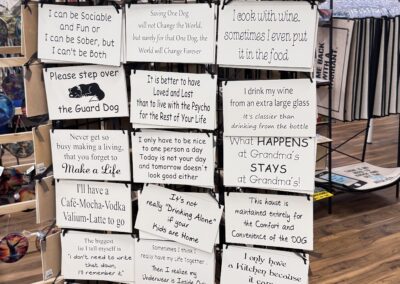 I can be Sociable
and Fun or
I can be Sober, but
I can't be Both
Saving One Dog
will not Change the World,
but surely for that One Dog, the
World will Change Forever
I cook with wine,
sometimes I even put
it in the food
Please step over
the Guard Dog
It is better to have
Loved and Lost
than to live with the Psycho
for the Rest of Your Life
I drink my wine
from an extra large glass
It's classier than
drinking from the bottle
Never get so
busy making a living,
that you forget to
Make a Life
I only have to be nice
to one person a day
Today is not your day
and tomorrow doesn't
look good either
What HAPPENS
at Grandma's
STAYS
at Grandma's!
I'll have a
Café-Mocha-Vodka
Valium-Latte to go
It's not
really "Drinking Alone"
if your
Kids are Home
This house is
maintained entirely for
the Comfort and
Convenience of the DOG
The biggest
lie I tell myself is
"I don't need to write
that down,
I'll remember it"
Sometimes I think I
really have my life Together
Then I realize my
Underwear is Inside Out
I only have
a Kitchen because
it came
ME BACK
WITH A